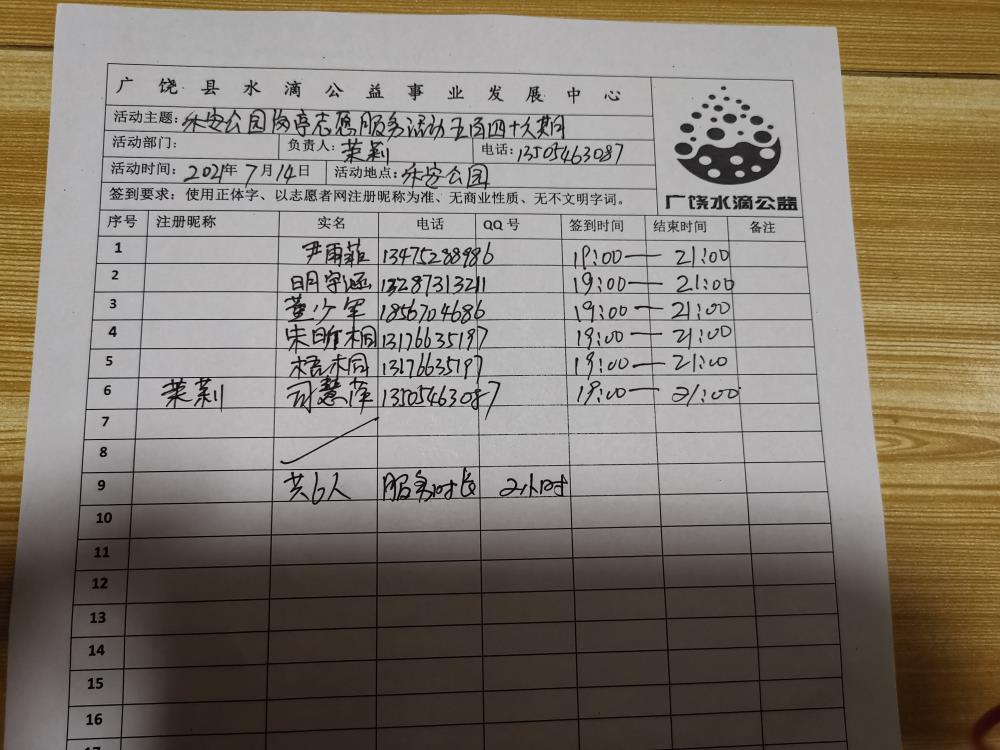 广饶县水滴公益事业发展中心
活动主题：乐安公园岗亭志愿服务活动五百四十六期
活动部门： 负责人：茉莉 电话：13505463087
活动时间：2021年7月14日 活动地点：乐安公园
签到要求：使用正体字、以志愿者网注册昵称为准、无商业性质、无不文明字词。
广饶水滴公益
序号 注册昵称 实名 电话 QQ号 签到时间 结束时间 备注
1 尹雨菲 13475288986 19:00— 21:00
2 明宇涵 13287313211 19:00— 21:00
3 黄少军 1856704686 19:00— 21:00
4 朱昕桐 13176635197 19:00— 21:00
5 梧桐 13176635197 19:00— 21:00
6 茉莉 司慧萍 13505463087 19:00— 21:00
7
8
9 共6人 服务时长 2小时
10
11
12
13
14
15
16